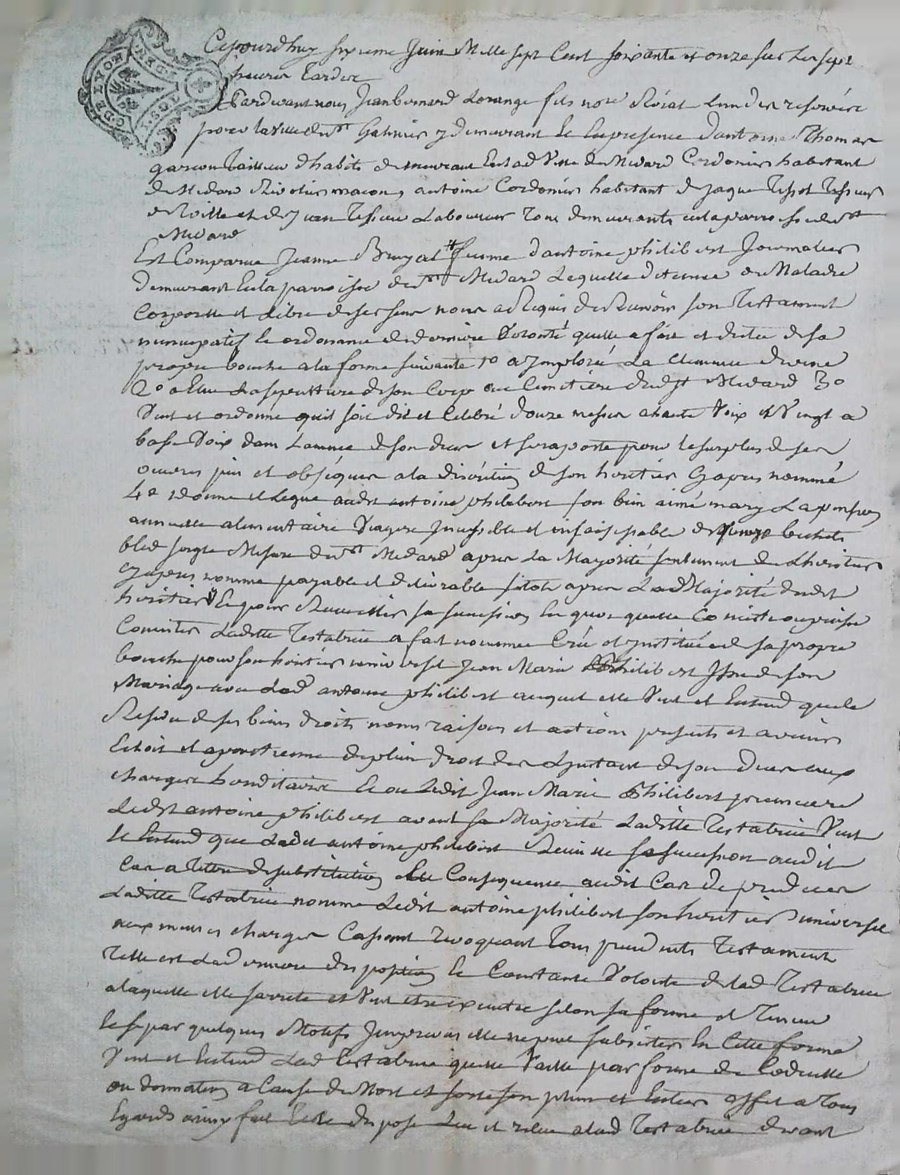 GDE LYON REGL I SOL
Cejourdhuy sixieme Juin Mille sept Cent soixante et onze sur les sept
heures
Pardevant nous Jean Bernard fils nore Roial reservéé
pour la ville de st Galmier y demeurant et En presence d'antoine Thomas
garcon Tailleur dhabits demeurant En lad Ville de Cordonier habitant
de antoine Cordonier habitant de Jaque Tissot Tissieur
et de Jean Laboureur Tous demeurants en la parroisse de st
Medard
Est Comparue Jeanne Bruyas # femme d'antoine philibert Journalier
demeurant En la parroisse de st Medard Laquelle detenue de Maladie
Corporelle et Libre de ses sens nous a Requis de Recevoir son Testament
nuncupatif et ordonance de derniere Volonté quelle a fait et dictée de sa
propre bouche a la forme suivante 1o a Imploré La Clemence divine
2o a Elue La sepulture de son Corps au Cimetiere dudt st Medard 3o
Veut et ordonne quil soit dit et Celebré douze messes a haute Voix et Vingt a
basse Voix dans Lannée de son deces et se raporte pour le surplus de ses
oeuvres pies et obseques a la discrétion de son heritier Cyapres nommé
4o donne et Legue audit antoine philibert son bien aimé mary La pension
annuelle alimentaire Viagere Incessible et insaisissable de bichets
bled seigle Mesure de st Medard apres La Majorité seulement de Lheritier
Cyapres nommé payable et delivrable sitot apres Lad Majorité dudit
heritier Et pour Recueillir sa succession En quoy quelle Consiste ou puisse
Consister Laditte Testatrice a fait nommé Créé et Institué de sa propre
bouche pour son heritier universel Jean Marie Philibert Issu de son
Mariage avec Led antoine philibert auquel elle Veut et Entend que le
Residu de ses biens droits noms raisons et actions presents et avenirs
Echoit et apartienne de plein droit des Linstant de son deces aux
charges hereditaires Et ou Ledit Jean Marie Philibert
Ledit antoine philibert avant sa Majorité Laditte Testatrice Veut
Et Entend que Ledit antoine philibert sa succession audit
Cas a titre de substitution En Consequence audit Cas de predeces
Laditte Testatrice nomme Ledit antoine philibert son heritier universel
aux memes charges Cassant Revoquant Tous precedents Testaments
Telle est La derniere disposition Et Constante Volonté de lad Testatrice
a laquelle elle sarrete et Veut etre executée selon sa forme et Teneur
Et si par quelques Motifs Imprevus elle ne peut subsister En Cette forme
Veut et Entend Lad Testatrice quelle Vaille par forme de Codicille
ou donnation a Cause de Mort et sorte son plein et Entier effet a Tous
Egards ainsy fait et disposé Leu et releu a lad Testatrice devant